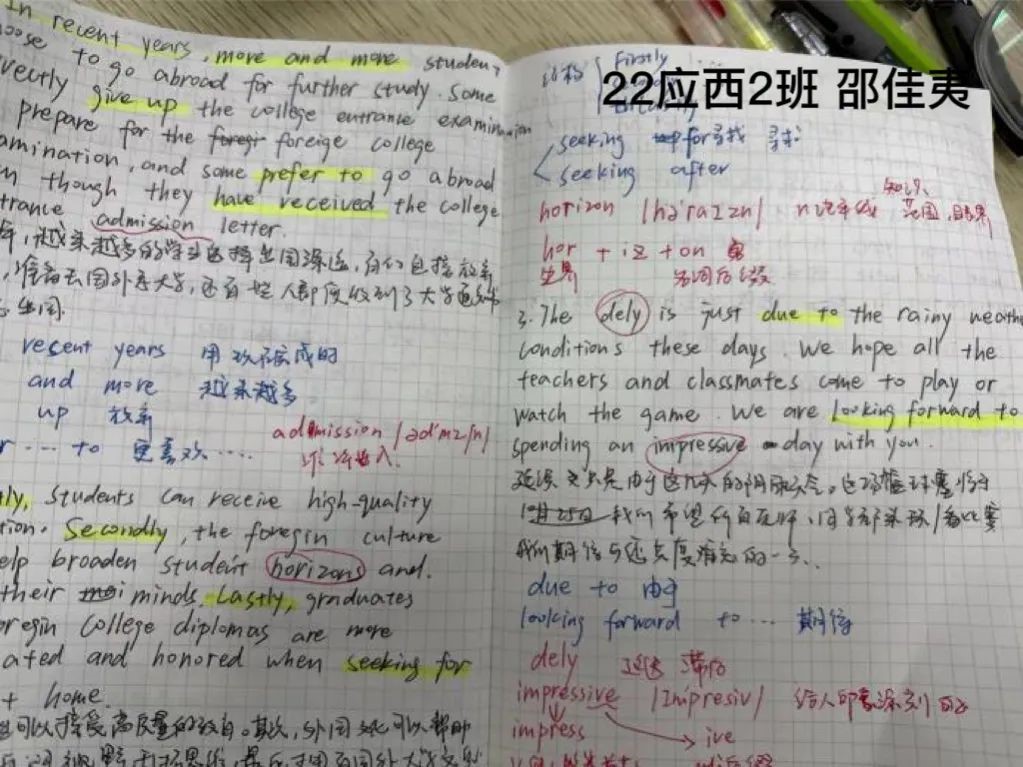 In recent years, more and more studen
oose to go abroad for further study. Some
rectly give up the college entrance examination
prepare for the foreige college
amination, and some prefer to go abroad
n though they have received the college
trance admission letter.
越来越多的学生选择出国深造
准备去国外考大学,还有些人即使收到了大学通知书
出国.
recent years
and more 越来越多
up 放弃
r .... to 更喜欢 ....
admission /əd'mɪʃn/
准许进入.
tly, students can receive high-quality
tion. Secondly, the foregin culture
elp broaden student horizons and.
their minds. Lastly, graduates
oregin College diplomas are more
ated and honored when seeking for
t home.
可以接受高质量的教育。其次,外国文化可以帮助
22应西2班 邵佳夷
结构
Firstly
seeking for 寻找 寻求
seeking after
horizon /hə'raɪzn/ n 地平线 知识、范围,眼界
hor + iz + on
坐界 名词后缀
3. The dely is just due to the rainy weathe
conditions these days. We hope all the
teachers and classmates come to play or
watch the game. We are looking forward to
spending an impressive day with you.
延误只是由于这几天的阴雨天气。这场篮球赛将于
10月25日 我们希望所有老师、同学都来玩/看比赛
我们期待与您共度难忘的一天..
due to 由于
looking forward to ... 期待
dely 延迟 滞后
impressive /Impresiv/ 给人印象深刻的
impress ive